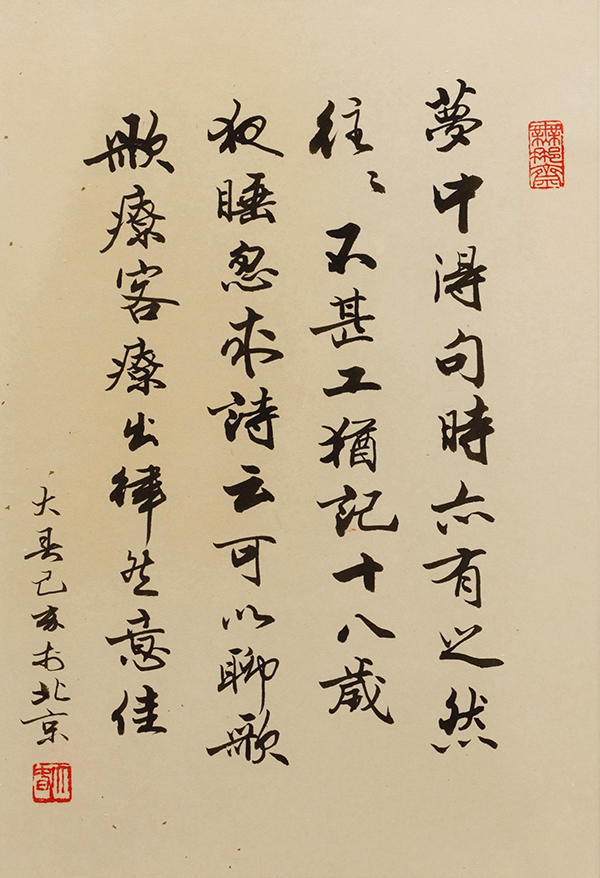 夢中得句時亦有之然
往々不甚工猶記十八歲
夜睡忽來詩云可以聊歌
歌療客療出律然意佳
大旾己亥於北京